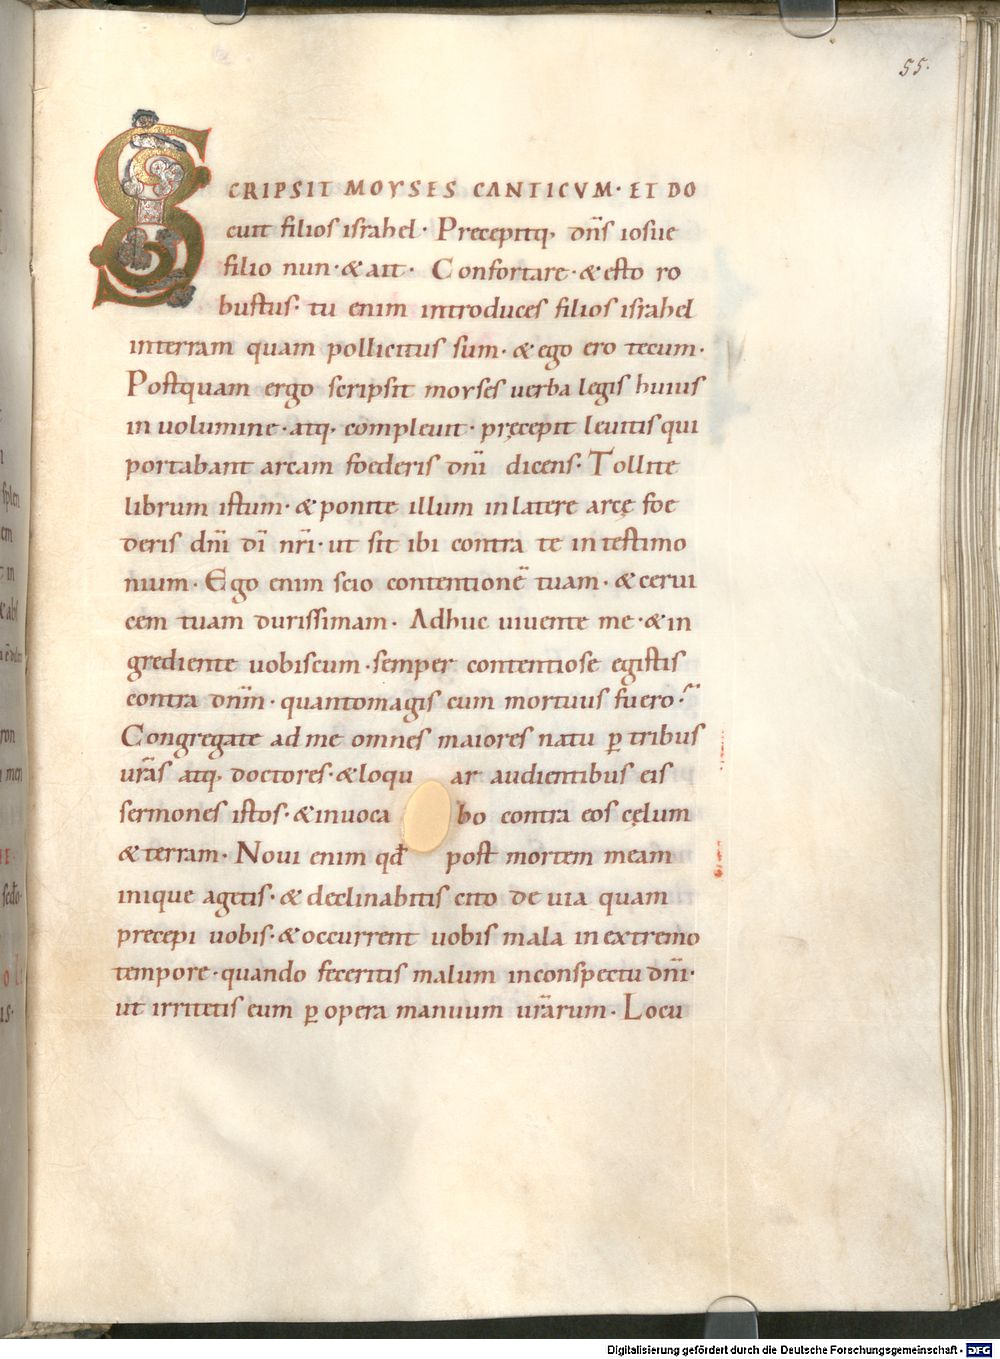 55.
SCRIPSIT MOYSES CANTICVM· ET DO
cuit filios israhel· Precepitq; dn̄s iosue
filio nun· & ait· Confortare· & esto ro
bustus· tu enim introduces filios israhel
interram quam pollicitus sum· & ego ero tecum·
Postquam ergo scripsit moyses uerba legis huius
in uolumine· atq; compleuit· pręcepit leuitis qui
portabant arcam foederis dn̄i dicens· Tollite
librum istum· & ponite illum in latere arcę foe
deris dn̄i dī nr̄i· ut sit ibi contra te in testimo
nium· Ego enim scio contentionē tuam· & cerui
cem tuam durissimam· Adhuc uiuente me· & in
grediente uobiscum· semper contentiose egistis
contra dn̄m· quantomagis cum mortuus fuero·
Congregate ad me omnes maiores natu ꝑ tribus
ur̄as atq; doctores· & loqu ar audientibus eis
sermones istos· & inuoca bo contra eos cęlum
& terram· Noui enim qđ post mortem meam
inique agetis· & declinabitis cito de uia quam
precepi uobis· & occurrent uobis mala in extremo
tempore· quando feceritis malum inconspectu dn̄i·
ut irritetis eum ꝑ opera manuum ur̄arum· Locu
Digitalisierung gefördert durch die Deutsche Forschungsgemeinschaft - DFG